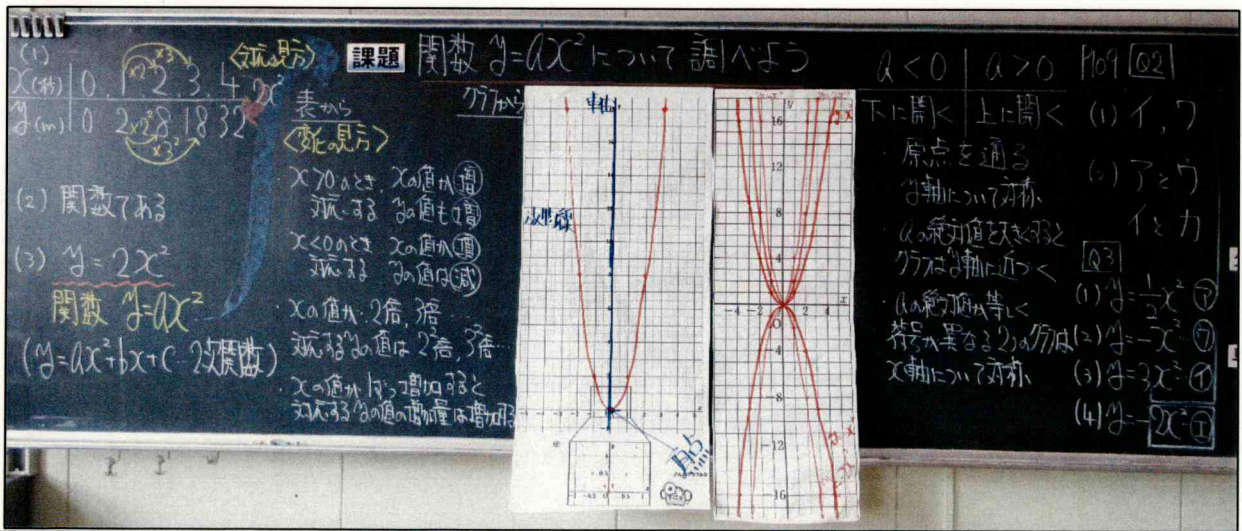 課題 関数 y=ax²について調べよう
(1)
x(秒) 0 1 2 3 4
y(m) 0 2 8 18 32
×2 ×3
×2² ×3²
2x²
<対応の見方>
(2) 関数である
(3) y=2x²
関数 y=ax²
(y=ax²+bx+c 2次関数)
表から
<変化の見方>
・x>0のとき、xの値が増
対応する yの値も増
x<0のとき xの値が増
対応する yの値は減
・xの値が 2倍, 3倍…
対応するyの値は 2²倍, 3²倍…
・xの値が1ずつ増加すると
対応するyの値の増加量は増加する
グラフから
軸
放物線
頂点
a<0 a>0
下に開く 上に開く
・原点を通る
y軸について対称
・aの絶対値を大きくすると
グラフはy軸に近づく
・aの絶対値が等しく
符号が異なる2つのグラフは
x軸について対称
P109 Q2
(1) イ, ウ
(2) アとウ
イとカ
Q3
(1) y=½x²
(2) y=
(3) y=3x² イ
(4) y=-2x² エ